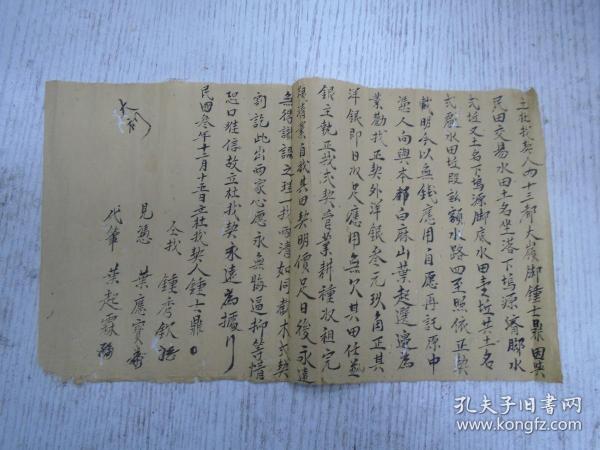 立杜找契人四十三都大嶺脚鍾士鼎因與
民田交易水田土名坐落下塢源脚水
式坵又土名下塢源脚底水田壹坵共土名
式處水田坵段畝額水路四至照依正契
載明今以無錢應用自愿再託原中
憑人向與本都白麻山葉起選邊為
業勸找正契外洋銀叁元玖角正其
洋銀即日收足應用無欠其田任並
銀主執正找式契管業耕種收租完
糧為業自找其田契明價足日後永遠
無得識認之理一找兩清如同截木式契
割訖此出兩家心愿永無悔逼抑等情
恐口難信故立杜找契永遠為據
民四叁年十二月十五日立杜找契人鍾士鼎
仝找 鍾秀欽
見憑 葉應寶
代筆 葉起霖
大利
孔夫子旧书网
www.kongfz.com